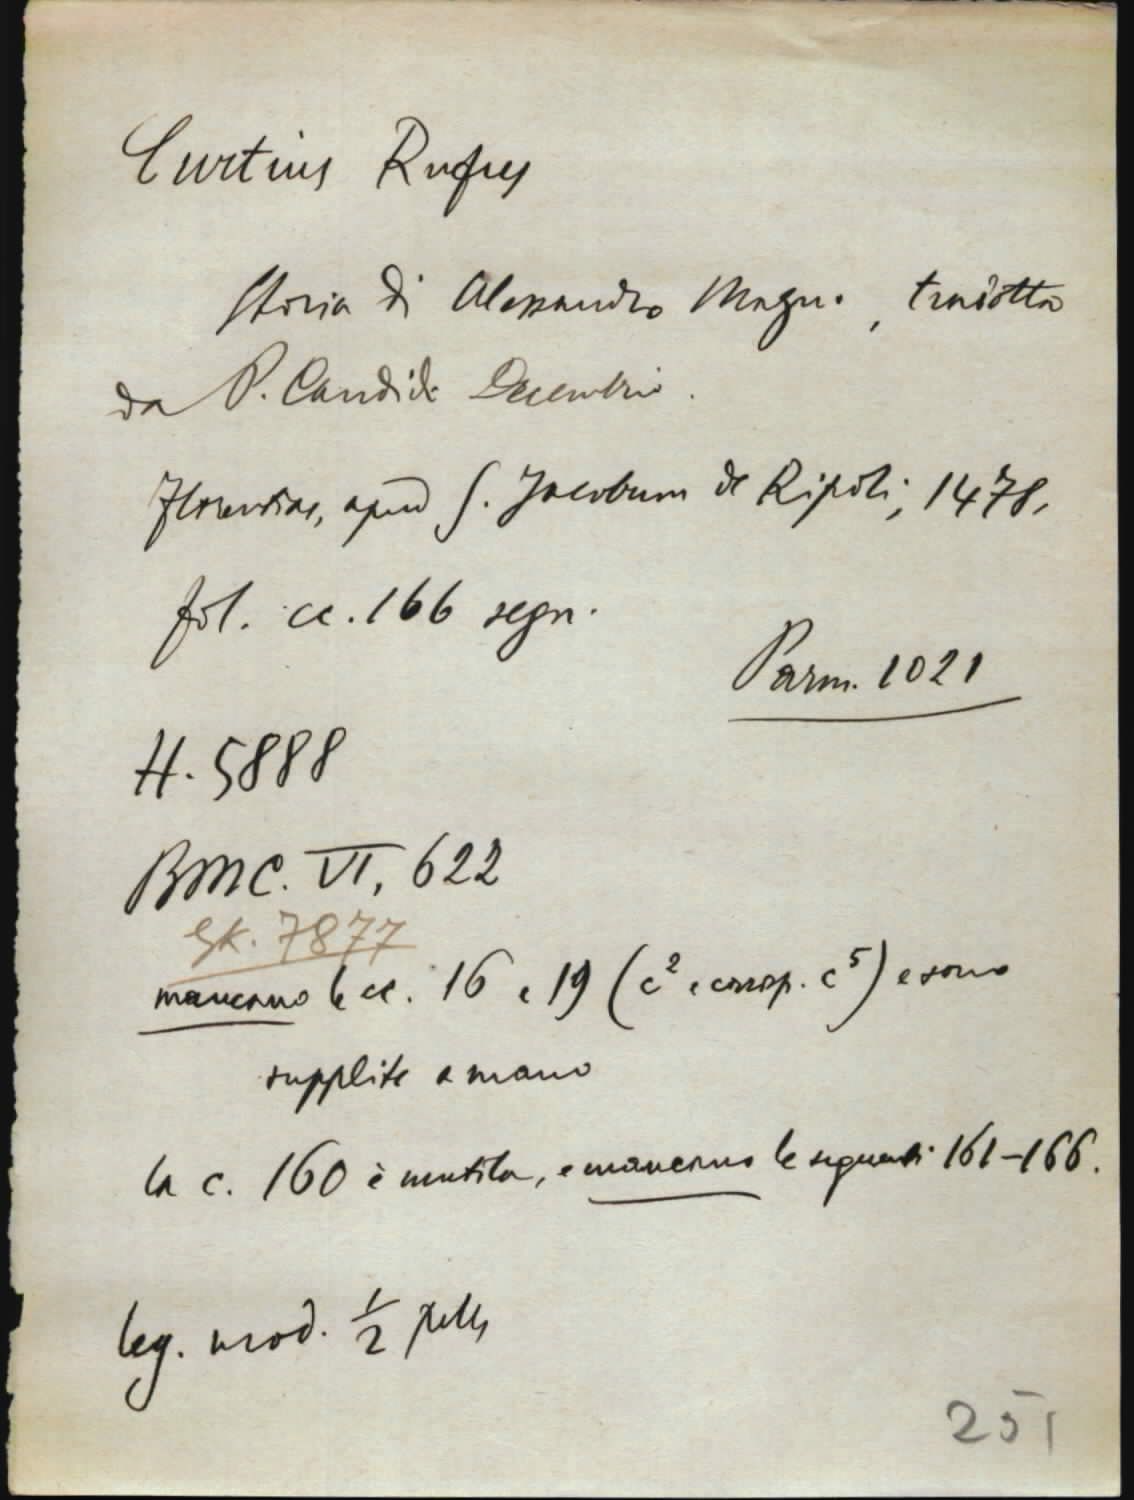 Curtius Rufus
Storia di Alessandro Magno, tradotta
da P. Candido Decembrio.
Florentiae, apud S. Jacobum de Ripoli, 1478,
fol. cc. 166 segn.
Parm. 1021
H. 5888
BMC. VI, 622
GK. 7877
mancano le cc. 16 e 19 (c² e corrisp. c⁵) e sono
supplite a mano
la c. 160 è mutila, e mancano le seguenti 161-166.
leg. mod. ½ pelle
251